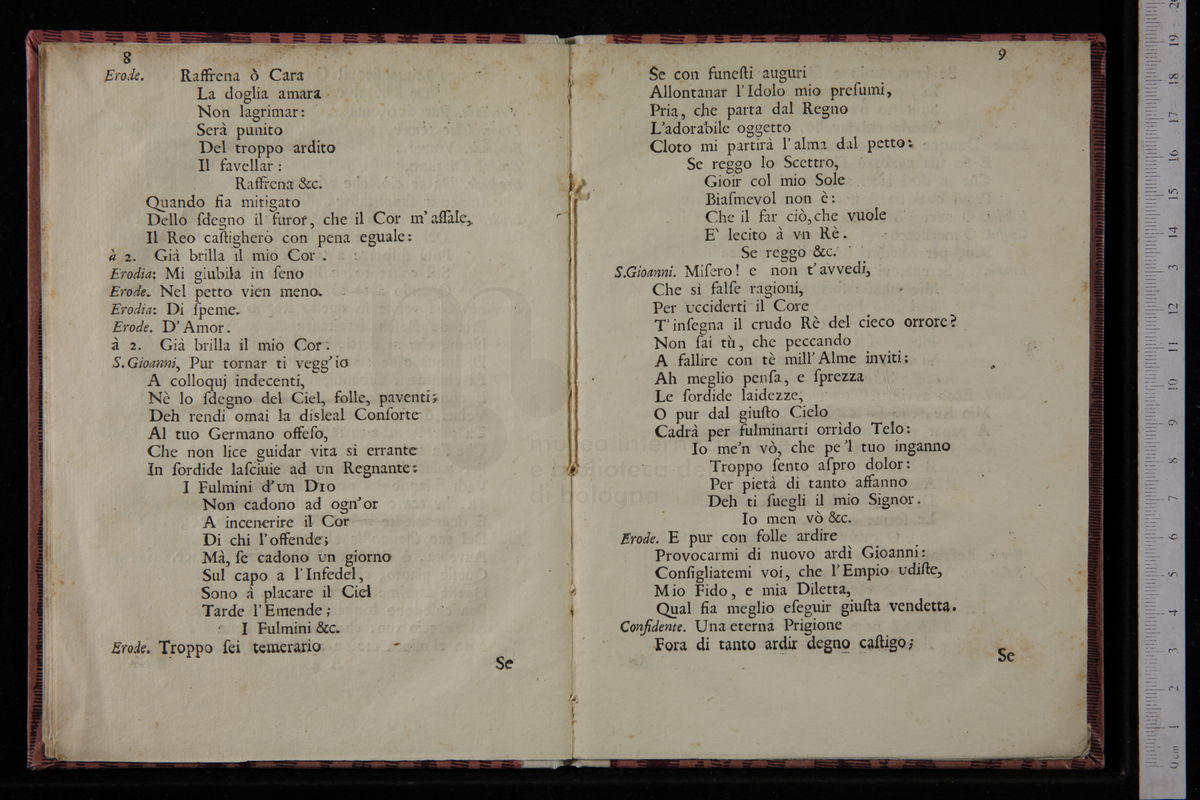 8
Erode. Raffrena ò Cara
La doglia amara
Non lagrimar:
Serà punito
Del troppo ardito
Il favellar:
Raffrena &c.
Quando fia mitigato
Dello ſdegno il furor, che il Cor m'aſſale,
Il Reo caſtigherò con pena eguale:
à 2. Già brilla il mio Cor.
Erodia: Mi giubila in ſeno
Erode. Nel petto vien meno.
Erodia: Di ſpeme.
Erode. D'Amor.
à 2. Già brilla il mio Cor.
S. Gioanni, Pur tornar ti vegg'io
A colloquj indecenti,
Nè lo ſdegno del Ciel, folle, paventi;
Deh rendi omai la disleal Conſorte
Al tuo Germano offeſo,
Che non lice guidar vita sì errante
In ſordide laſciuie ad un Regnante:
I Fulmini d'un DIO
Non cadono ad ogn'or
A incenerire il Cor
Di chi l'offende;
Mà, ſe cadono un giorno
Sul capo a l'Infedel,
Sono à placare il Ciel
Tarde l'Emende;
I Fulmini &c.
Erode. Troppo ſei temerario
Se
9
Se con funeſti auguri
Allontanar l'Idolo mio preſumi,
Pria, che parta dal Regno
L'adorabile oggetto
Cloto mi partirà l'alma dal petto:
Se reggo lo Scettro,
Gioir col mio Sole
Biaſmevol non è:
Che il far ciò, che vuole
E' lecito à vn Rè.
Se reggo &c.
S. Gioanni. Miſero! e non t'avvedi,
Che sì falſe ragioni,
Per ucciderti il Core
T'inſegna il crudo Rè del cieco orrore?
Non ſai tù, che peccando
A fallire con tè mill'Alme inviti;
Ah meglio penſa, e ſprezza
Le ſordide laidezze,
O pur dal giuſto Cielo
Cadrà per fulminarti orrido Telo:
Io me'n vò, che pe'l tuo inganno
Troppo ſento aſpro dolor:
Per pietà di tanto affanno
Deh ti ſuegli il mio Signor.
Io men vò &c.
Erode. E pur con folle ardire
Provocarmi di nuovo ardì Gioanni:
Conſigliatemi voi, che l'Empio udiſte,
Mio Fido, e mia Diletta,
Qual fia meglio eſeguir giuſta vendetta.
Confidente. Una eterna Prigione
Fora di tanto ardir degno caſtigo;
Se